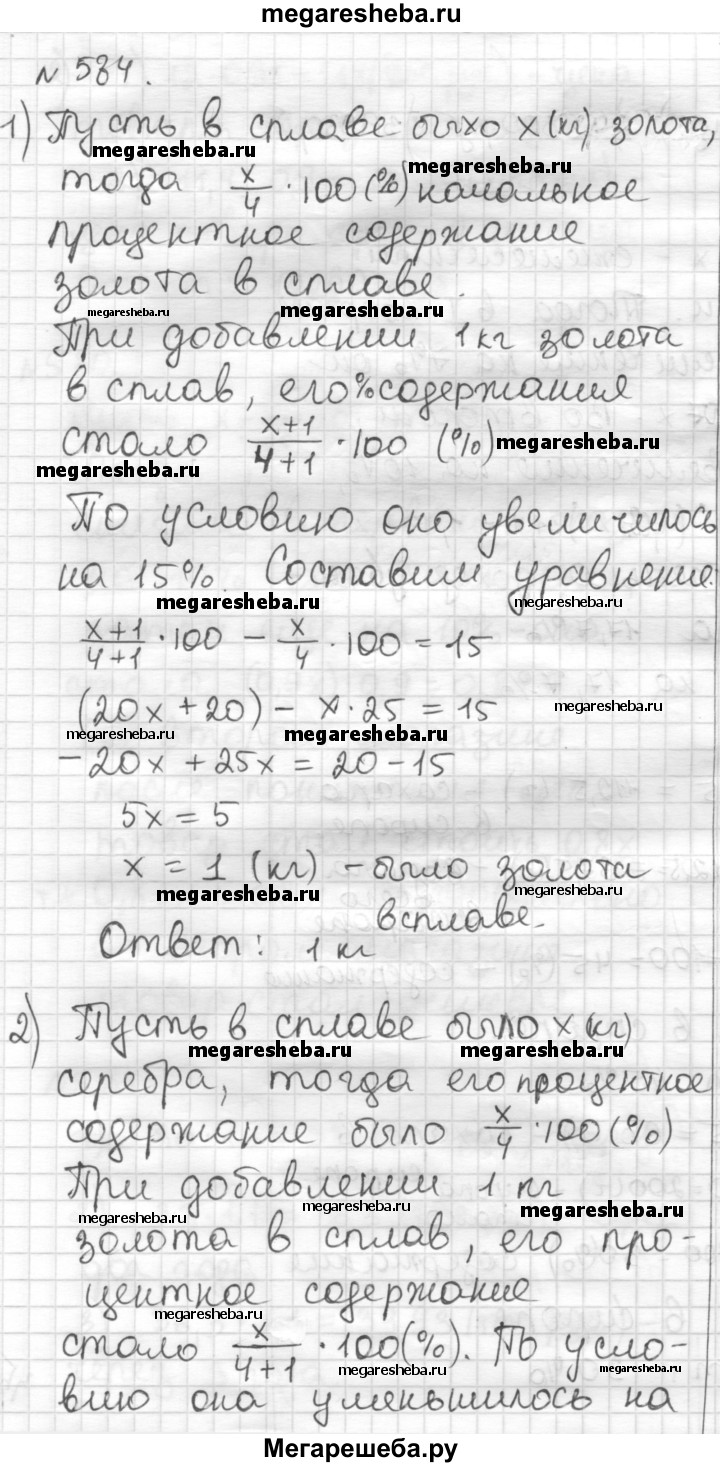 megaresheba.ru
№ 584.
1) Пусть в сплаве было x (кг) золота,
megaresheba.ru megaresheba.ru
тогда x/4 · 100 (%) начальное
процентное содержание
золота в сплаве.
megaresheba.ru megaresheba.ru
При добавлении 1 кг золота
в сплав, его % содержания
стало (x+1)/(4+1) · 100 (%) megaresheba.ru
megaresheba.ru
По условию оно увеличилось
на 15%. Составим уравнение:
megaresheba.ru megaresheba.ru
(x+1)/(4+1) · 100 - x/4 · 100 = 15
(20x + 20) - x · 25 = 15 megaresheba.ru
megaresheba.ru megaresheba.ru
-20x + 25x = 20 - 15
5x = 5
x = 1 (кг) - было золота
megaresheba.ru megaresheba.ru
в сплаве.
Ответ: 1 кг
2) Пусть в сплаве было x (кг)
megaresheba.ru megaresheba.ru
серебра, тогда его процентное
содержание было x/4 · 100 (%)
При добавлении 1 кг
megaresheba.ru megaresheba.ru megaresheba.ru
золота в сплав, его про-
центное содержание
megaresheba.ru megaresheba.ru
стало x/(4+1) · 100 (%). По усло-
megaresheba.ru megaresheba.ru
вию она уменьшилось на
Мегарешеба.ру